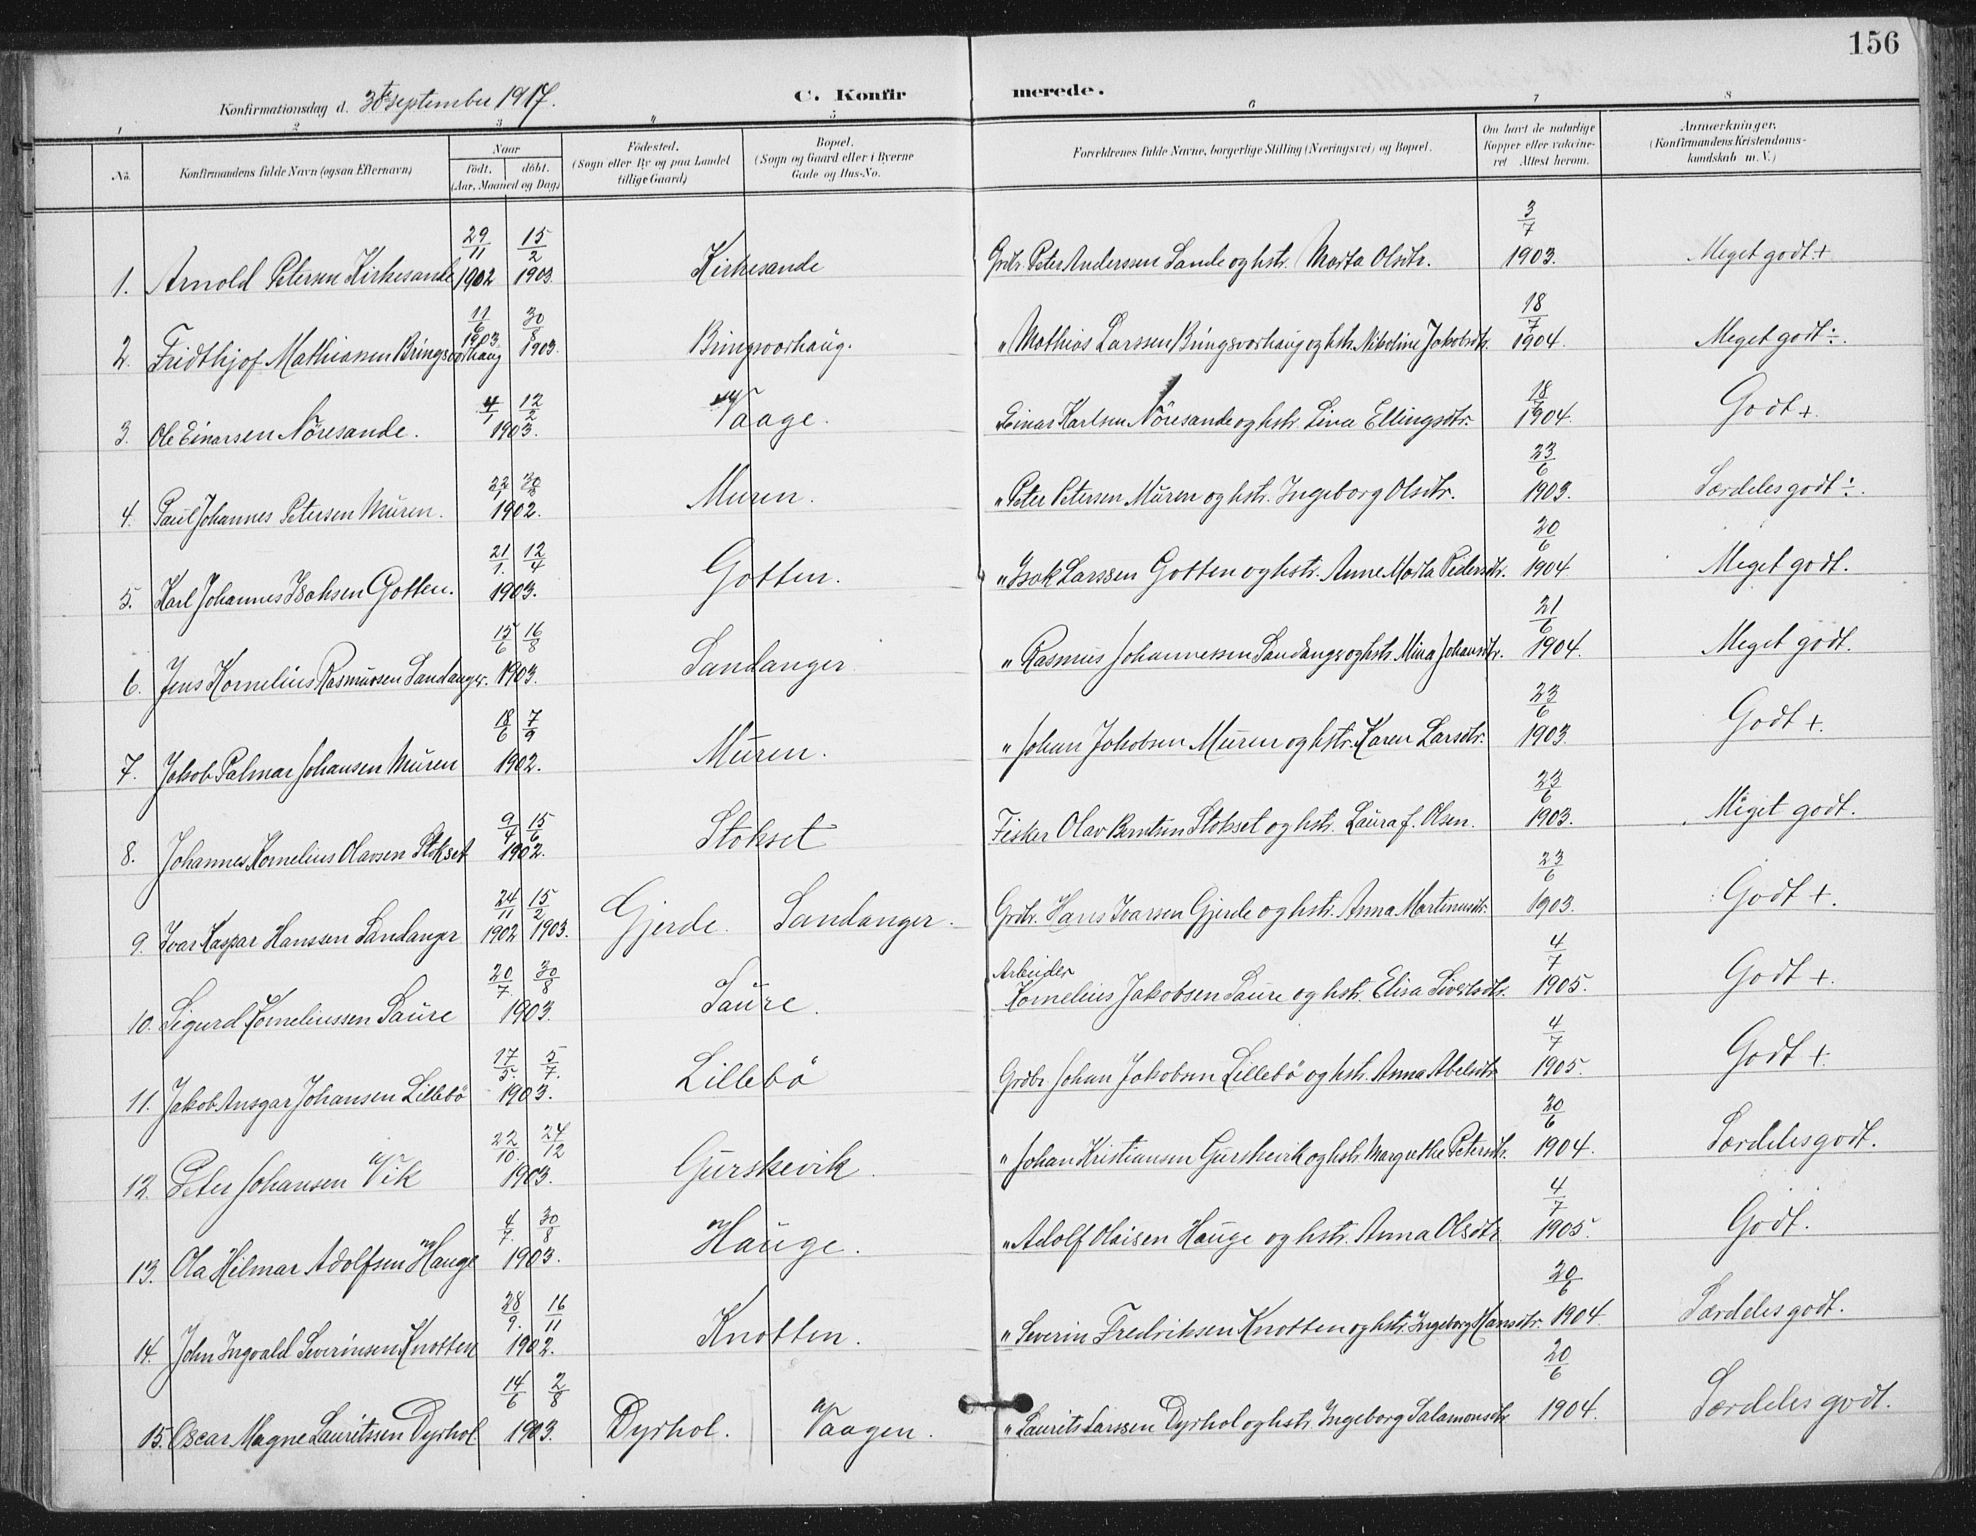 156
Konfirmationsdag d. 30te september 1917.
C. Konfirmerede.
1 2 3 4 5 6 7 8
No.
Konfirmandens fulde Navn (ogsaa Efternavn)
Naar
födt. döbt.
(Aar, Maaned og Dag)
Födested.
(Sogn eller By og paa Landet
tillige Gaard)
Bopæl.
(Sogn og Gaard eller i Byerne
Gade og Hus-No.
Forældrenes fulde Navne, borgerlige Stilling (Næringsvei) og Bopæl.
Om havt de naturlige
Kopper eller vakcine-
ret Attest herom.
Anmærkninger.
(Konfirmandens Kristendoms-
kundskab m. V.)
1. Arnold Petersen Kirkesande 29/11 1902 15/2 1903 Kirkesande Grdbr. Peter Anderssen Sande og hstr. Marta Olsdtr. 3/7 1903. Meget godt +
2. Fridthjof Mathiassen Bringsvorhaug 11/6 1903 30/8 1903. Bringsvorhaug. " Mathias Larssen Bringsvorhaug og hstr. Nikoline Jakobsdtr. 18/7 1904. Meget godt ÷.
3. Ole Einarsen Nöresande. 4/1 12/2 1903. Vaage. Einar Karlsen Nöresande og hstr. Lina Ellingsdtr. 18/7 1904. Godt +.
4. Paul Johannes Petersen Muren. 22/1 30/8 1902. Muren. " Peter Petersen Muren og hstr. Ingeborg Olsdtr. 23/6 1903. Særdeles godt ÷.
5. Karl Johannes Isaksen Gotten. 21/1. 12/4 1903. Gotten. " Isak Larssen Gotten og hstr. Anne Marta Pedersdtr. 20/6 1904 Meget godt.
6. Jens Kornelius Rasmussen Sandanger. 15/6 16/8 1903. Sandanger " Rasmus Johannessen Sandanger og hstr. Mina Johansdtr. 21/6 1904. Meget godt.
7. Jakob Palmar Johansen Muren 18/6 7/9 1902. Muren. " Johan Jakobsen Muren og hstr. Karen Larsdtr. 23/6 1903. Godt +.
8. Johannes Kornelius Olavsen Stokset 9/4 15/6 1902. Stokset Fisker Olav Berntsen Stokset og hstr. Laura f. Olsen. 23/6 1903. Meget godt.
9. Ivar Kaspar Hanssen Sandanger 24/11 1902 15/2 1903. Gjerde. Sandanger. Grdbr. Hans Ivarsen Gjerde og hstr. Anna Martinusdtr. 23/6 1903. Godt +.
10. Sigurd Korneliussen Saure 20/7 30/8 1903. Saure. Arbeider Kornelius Jakobsen Saure og hstr. Elisa Sivertsdtr. 4/7 1905. Godt +.
11. Jakob Ansgar Johansen Lillebö 17/5. 5/7. 1903. Lillebö Grdbr Johan Jakobsen Lillebö og hstr. Anna Abelsdtr 4/7 1905. Godt +.
12. Peter Johansen Vik 22/10. 27/12 1903. Gurskevik. " Johan Kristiansen Gurskevik og hstr. Margrethe Petersdtr. 20/6 1904. Særdeles godt.
13. Ola Hilmar Adolfsen Hauge 4/7. 30/8 1903. Hauge. " Adolf Olaisen Hauge og hstr. Anna Olsdtr. 4/7 1905. Godt.
14. John Ingvald Severinsen Knotten 28/9. 16/11 1902. Knotten. " Severin Fredriksen Knotten og hstr. Ingeborg Hansdtr. 20/6 1904. Særdeles godt.
15. Oscar Magne Lauritssen Dyrhol 14/6 2/8 1903. Dyrhol. Vaagen. " Laurits Larssen Dyrhol og hstr. Ingeborg Salamonsdtr. 20/6 1904. Særdeles godt.